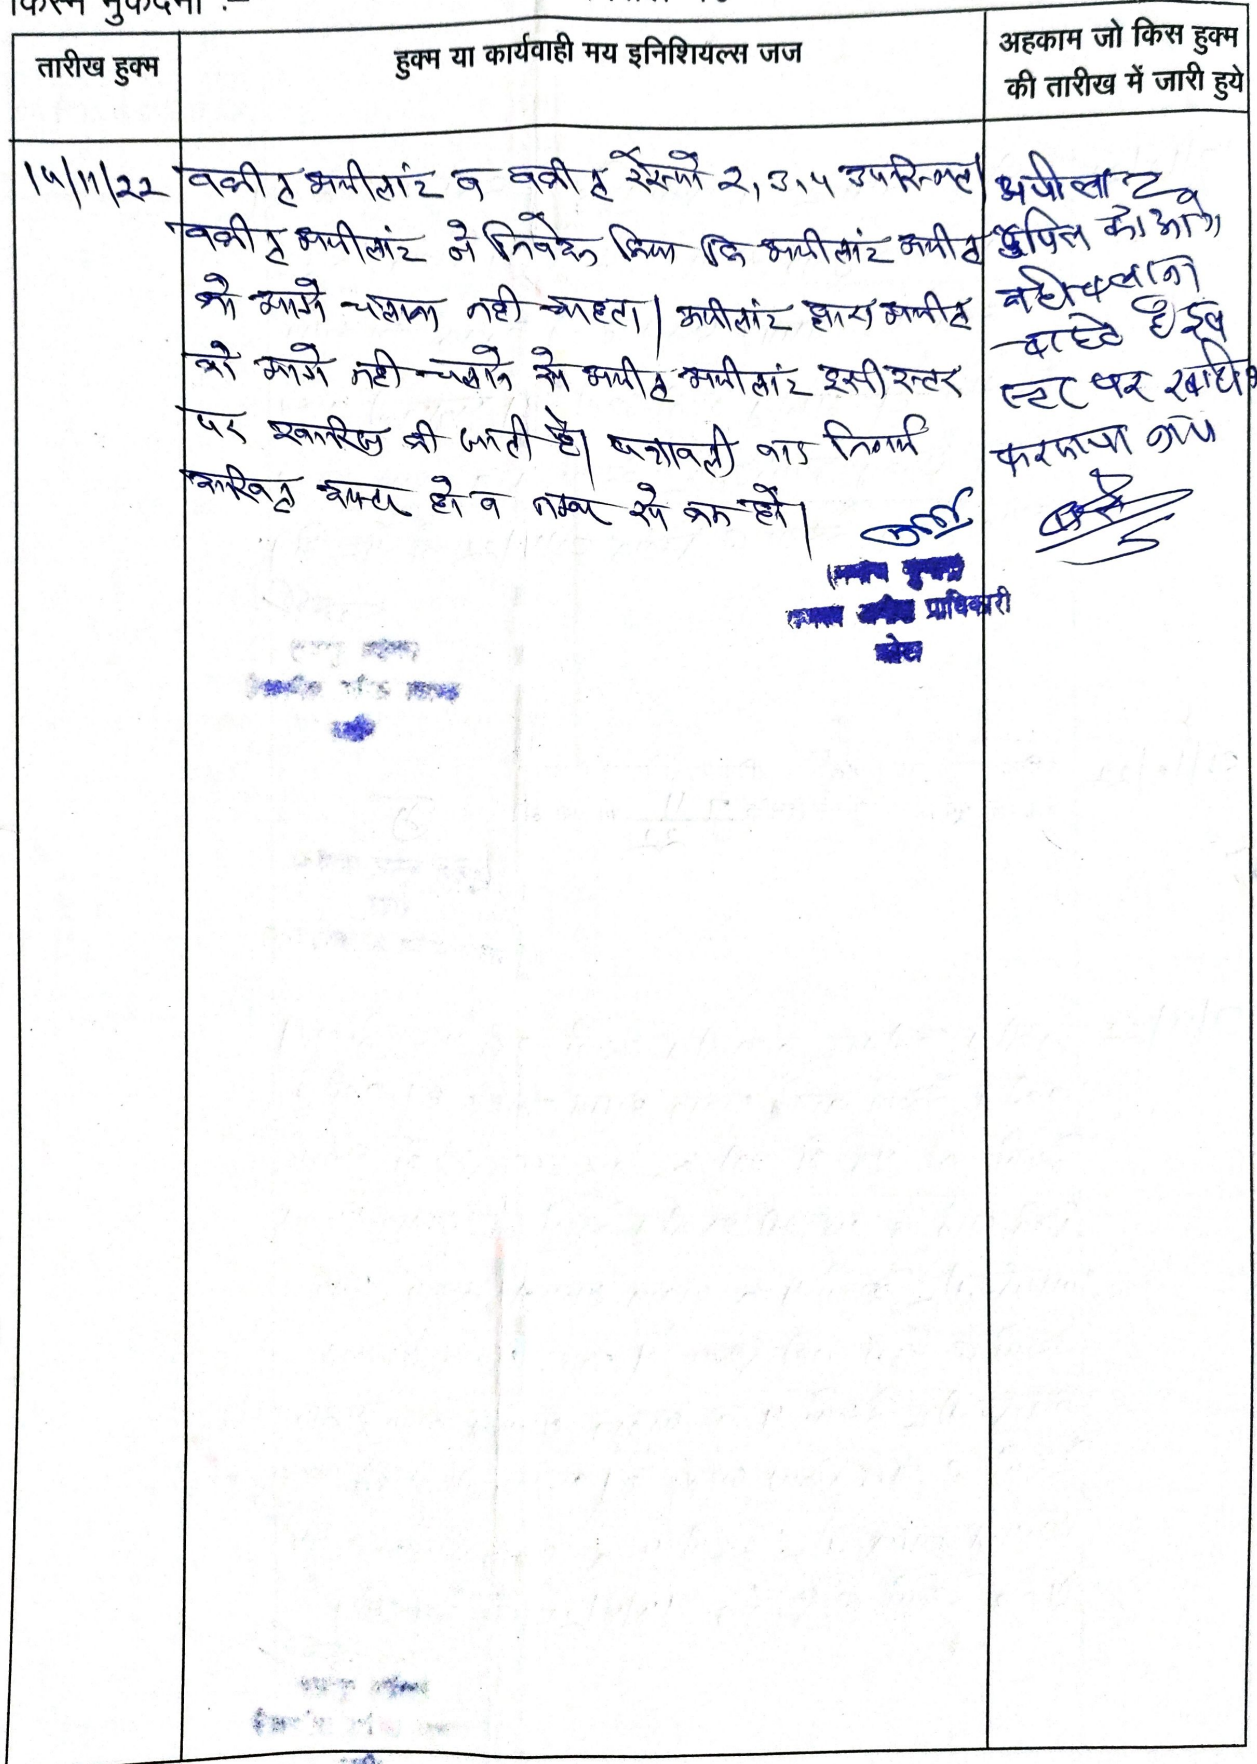 किस्म मुकदमा :–
तारीख हुक्म
हुक्म या कार्यवाही मय इनिशियल्स जज
अहकाम जो किस हुक्म
की तारीख में जारी हुये
14/11/22
वकील अपीलांट व वकील रेस्पो 2,3,4 उपस्थित।
वकील अपीलांट ने निवेदन किया कि अपीलांट अपील
को आगे चलाना नही चाहता। अपीलांट द्वारा अपील
को आगे नही चलाने से अपील अपीलांट इसी स्तर
पर खारिज की जाती है। पत्रावली बाद निर्णय
दाखिल दफ्तर हो व नम्बर से कम हो।
प्राधिकारी
अपीलाट
अपिल को आगे
नही चलाना
चाहते है इस
स्टर पर खारिज
करमाया जाये